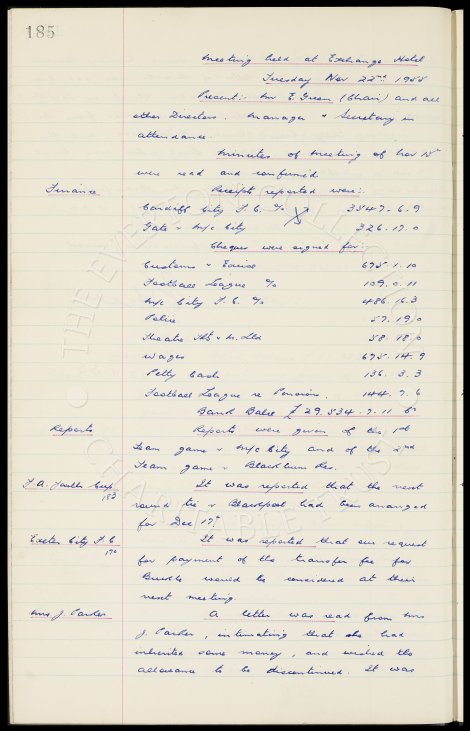 185
Meeting held at Exchange Hotel
Tuesday Nov 22nd 1955
Present:- Mr E. Green (Chair) and all
other Directors. Manager & Secretary in
attendance.
Minutes of meeting of Nov 15th
were read and confirmed.
Finance
Receipts reported were:-
Cardiff City F.C. %
3547. 6. 9
Gate v M/c City
326. 17. 0
Cheques were signed for:-
Customs & Excise
675. 1. 10
Football League %
109. 0. 11
M/c City F.C. %
486. 16. 3
Police
57. 19. 0
Theatre & M. Ltd
58. 18. 0
Wages
675. 14. 9
Petty Cash
136. 3. 3
Football League re Pensions.
144. 7. 6
Bank Balce £29,534. 7. 11
Reports
Reports were given of the 1st
Team game v M/c City and of the 2nd
Team game v Blackburn Res.
F.A. Youth Cup
183
It was reported that the next
round tie v Blackpool had been arranged
for Dec 17th.
Exeter City F.C.
170
It was reported that our request
for payment of the transfer fee for
Buckle would be considered at their
next meeting.
Mrs J. Parker
A letter was read from Mrs
J. Parker, intimating that she had
inherited some money, and wished the
allowance to be discontinued. It was
THE EVERTON COLLECTION
CHARITABLE TRUST